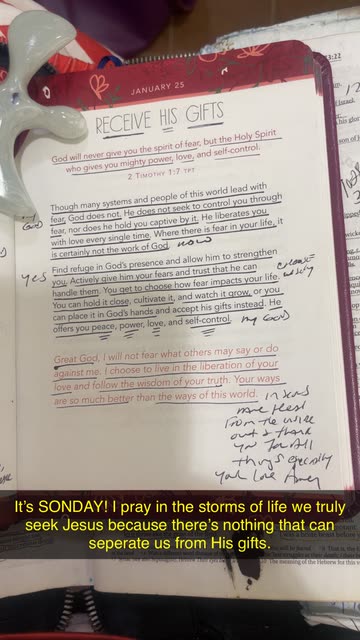 JANUARY 25
RECEIVE HIS GIFTS
God will never give you the spirit of fear, but the Holy Spirit
who gives you mighty power, love, and self-control.
2 TIMOTHY 1:7 TPT
Though many systems and people of this world lead with
fear, God does not. He does not seek to control you through
God
fear, nor does he hold you captive by it. He liberates you
with love every single time. Where there is fear in your life, it
is certainly not the work of God. now
yes Find refuge in God's presence and allow him to strengthen
you. Actively give him your fears and trust that he can
handle them. You get to choose how fear impacts your life.
You can hold it close, cultivate it, and watch it grow, or you
can place it in God's hands and accept his gifts instead. He
offers you peace, power, love, and self-control. my God
Great God, I will not fear what others may say or do
against me. I choose to live in the liberation of your
love and follow the wisdom of your truth. Your ways
are so much better than the ways of this world. in Jesus
name
from the inside
out & thank
you for all
things
your love Amen
It's SONDAY! I pray in the storms of life we truly
seek Jesus because there's nothing that can
seperate us from His gifts.